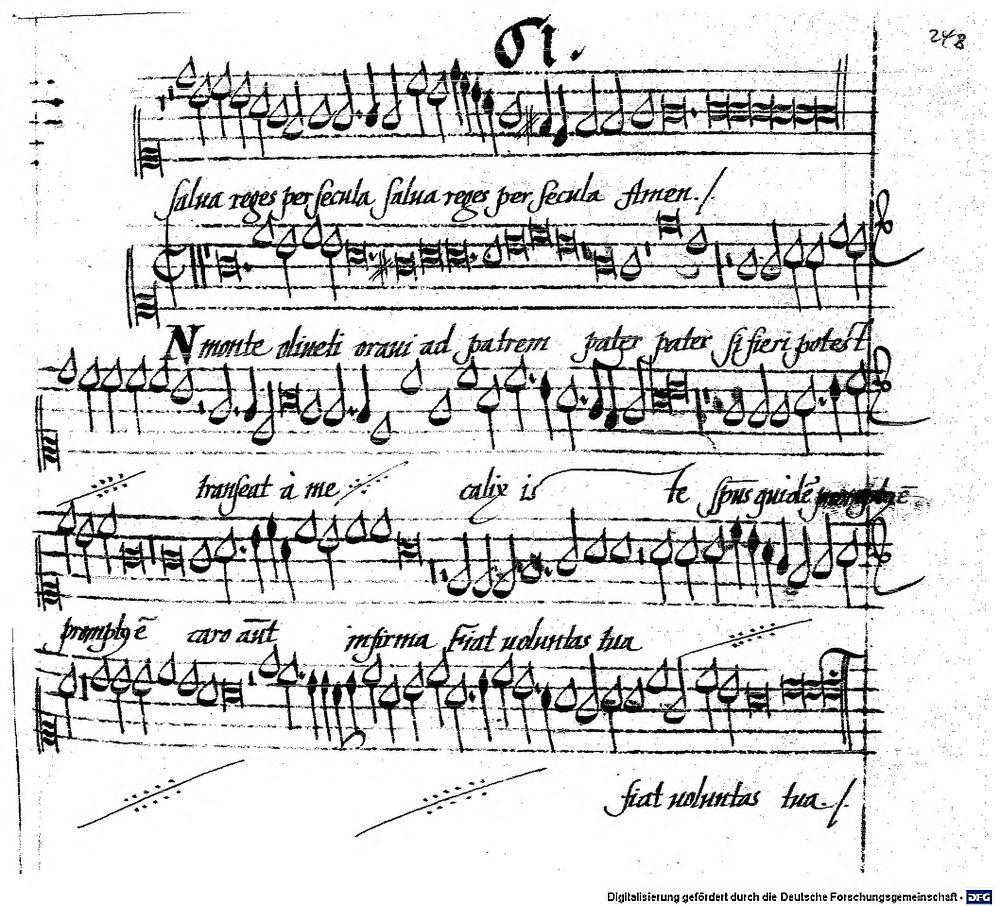 248
salua reges per secula salua reges per secula Amen.
N monte oliueti oraui ad patrem pater pater si fieri potest
transeat à me calix is te spūs quidē
promptꝯ ē caro aūt infirma Fiat uoluntas tua
fiat uoluntas tua.
Digitalisierung gefördert durch die Deutsche Forschungsgemeinschaft - DFG